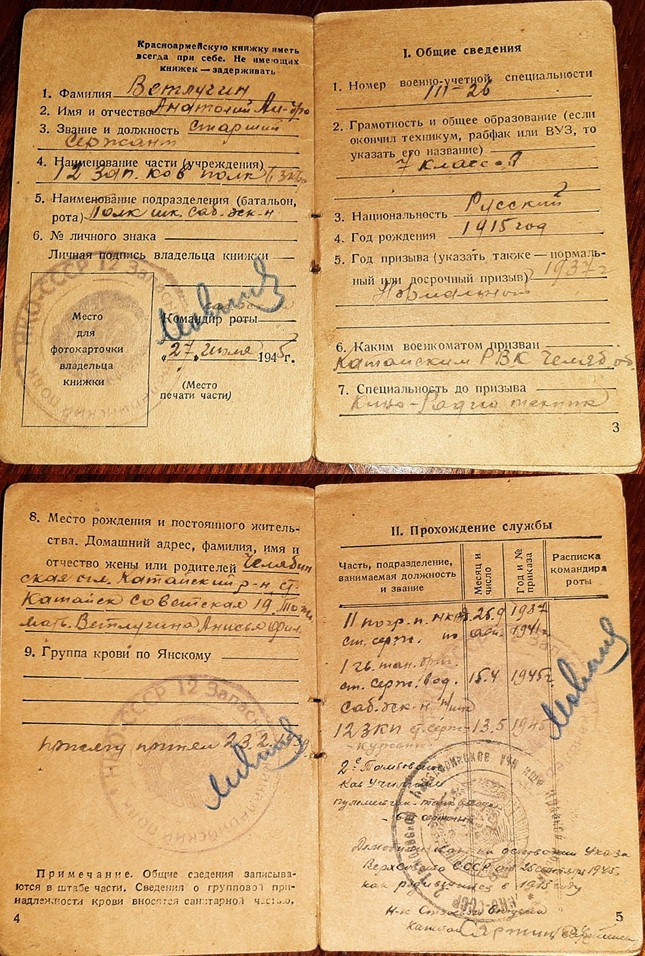 Красноармейскую книжку иметь
всегда при себе. Не имеющих
книжек — задерживать
1. Фамилия Ветлугин
2. Имя и отчество Анатолий
3. Звание и должность Старший
Сержант
4. Наименование части (учреждения)
12 Зап. кав полк
5. Наименование подразделения (батальон,
рота) Полк шк. саб.
6. № личного знака
Личная подпись владельца книжки
Место
для
фотокарточки
владельца
книжки
Командир роты
„27„ июля 1945г.
(Место
печати части)
НКО-СССР 12 Запасн
I. Общие сведения
1. Номер военно-учетной специальности
III-26
2. Грамотность и общее образование (если
окончил техникум, рабфак или ВУЗ, то
указать его название)
7 классов
3. Национальность Русский
4. Год рождения 1915 год
5. Год призыва (указать также — нормаль-
ный или досрочный призыв) 1937г
Нормальный
6. Каким военкоматом призван
Катайским РВК Челяб об
7. Специальность до призыва
Кино-Радио техник
3
8. Место рождения и постоянного житель-
ства. Домашний адрес, фамилия, имя и
отчество жены или родителей Челябин
ская Катайский р-н ст.
Катайск Советская 19
мать. Ветлугина Анисья
9. Группа крови по Янскому
НКО-СССР 12 Запасн
присягу принял 23.2
Примечание. Общие сведения записыва-
ются в штабе части. Сведения о групповой при-
надлежности крови вносятся санитарной частью.
4
II. Прохождение службы
Часть, подразделение,
занимаемая должность
и звание
Месяц и
число
Год и №
приказа
Расписка
командира
роты
11 погр. п. 26.9 1937
ст. серж. по 1941г
1 гв. тан. бриг.
ст. серж. 15.4 1945г.
саб. эск-н
12 ЗКП 13.5 1945
Курсант
2е Тамбовское
Кав Училище
на основании Указа
Верховного СССР от 25 сентября 1945г.
как родившийся в 1915 году
5